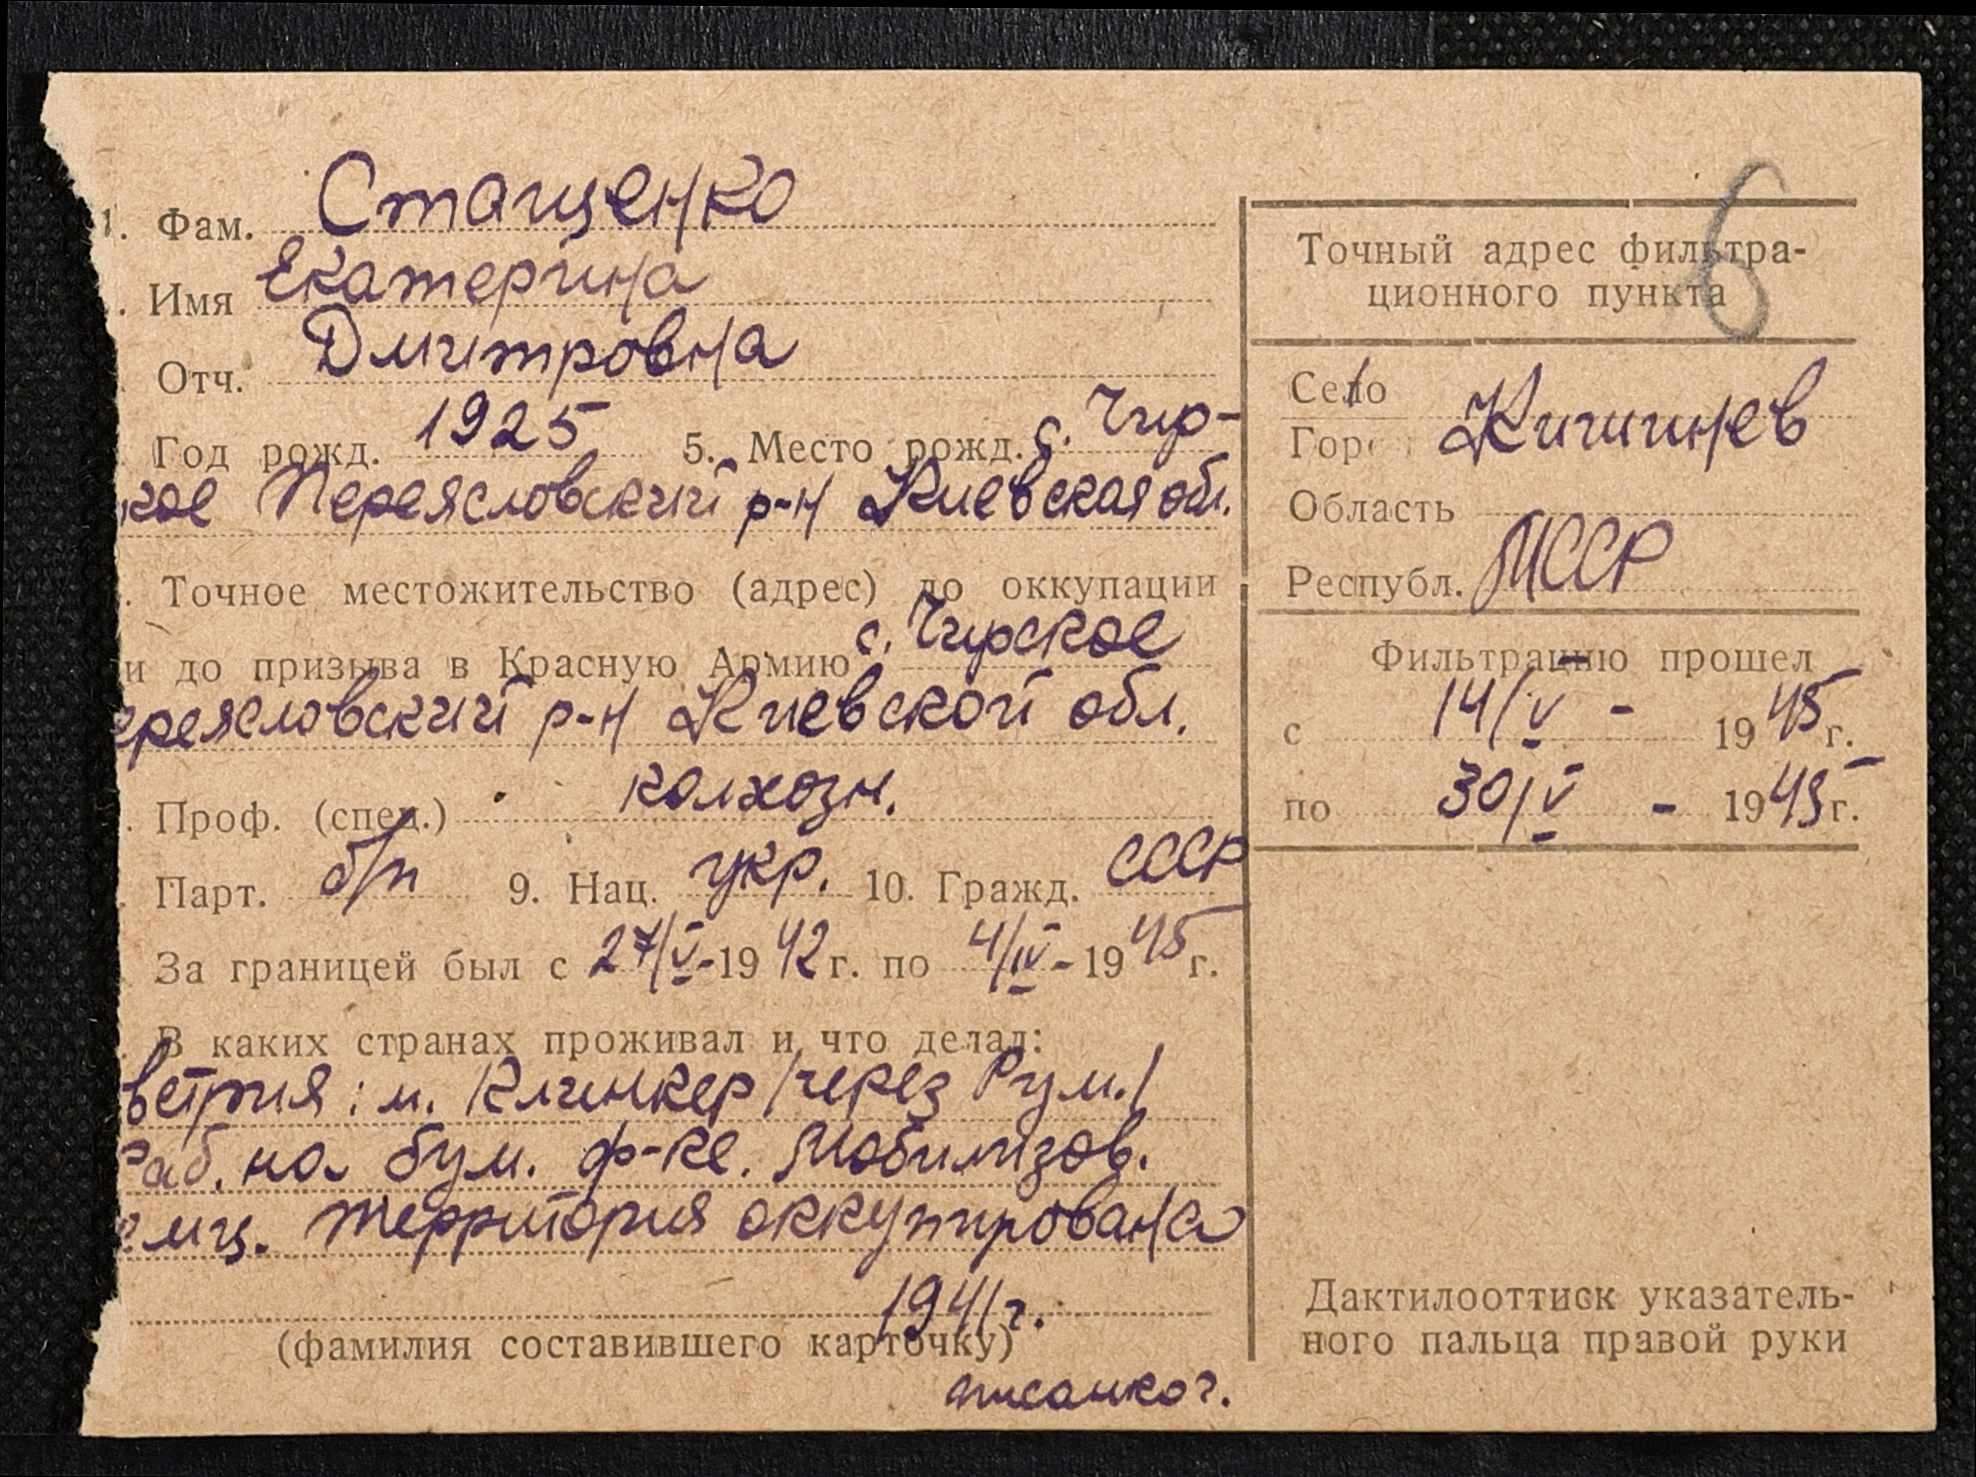 1. Фам. Стащенко
. Имя Екатерина
Отч. Дмитровна
. Год рожд. 1925 5. Место рожд. с. Чир-
кое Переясловский р-н Киевская обл.
. Точное местожительство (адрес) до оккупации
и до призыва в Красную Армию с. Чирское
ереясловский р-н Киевской обл.
. Проф. (спец.) колхозн.
. Парт. б/п 9. Нац. укр. 10. Гражд. СССР
. За границей был с 27/V-1942 г. по 4/IV-1945 г.
. В каких странах проживал и что делал:
встрия: м. Клинкер /через Рум./
Раб. на бум. ф-ке. Мобилизов.
емц. территория оккупирована
1941 г.
(фамилия составившего карточку)
6
Точный адрес фильтра-
ционного пункта
Село
Гор Кишинев
Область
Республ. МССР
Фильтрацию прошел
с 14/V - 1945 г.
по 30/V - 1945 г.
Дактилооттиск указатель-
ного пальца правой руки